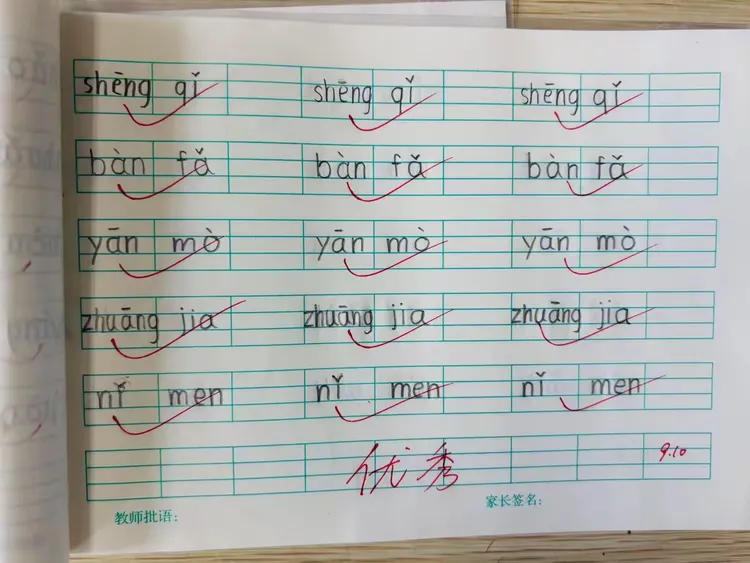 shēng qǐ shēng qǐ shēng qǐ
bàn fǎ bàn fǎ bàn fǎ
yān mò yān mò yān mò
zhuāng jia zhuāng jia zhuāng jia
nǐ men nǐ men nǐ men
优秀 9.10
教师批语: 家长签名: